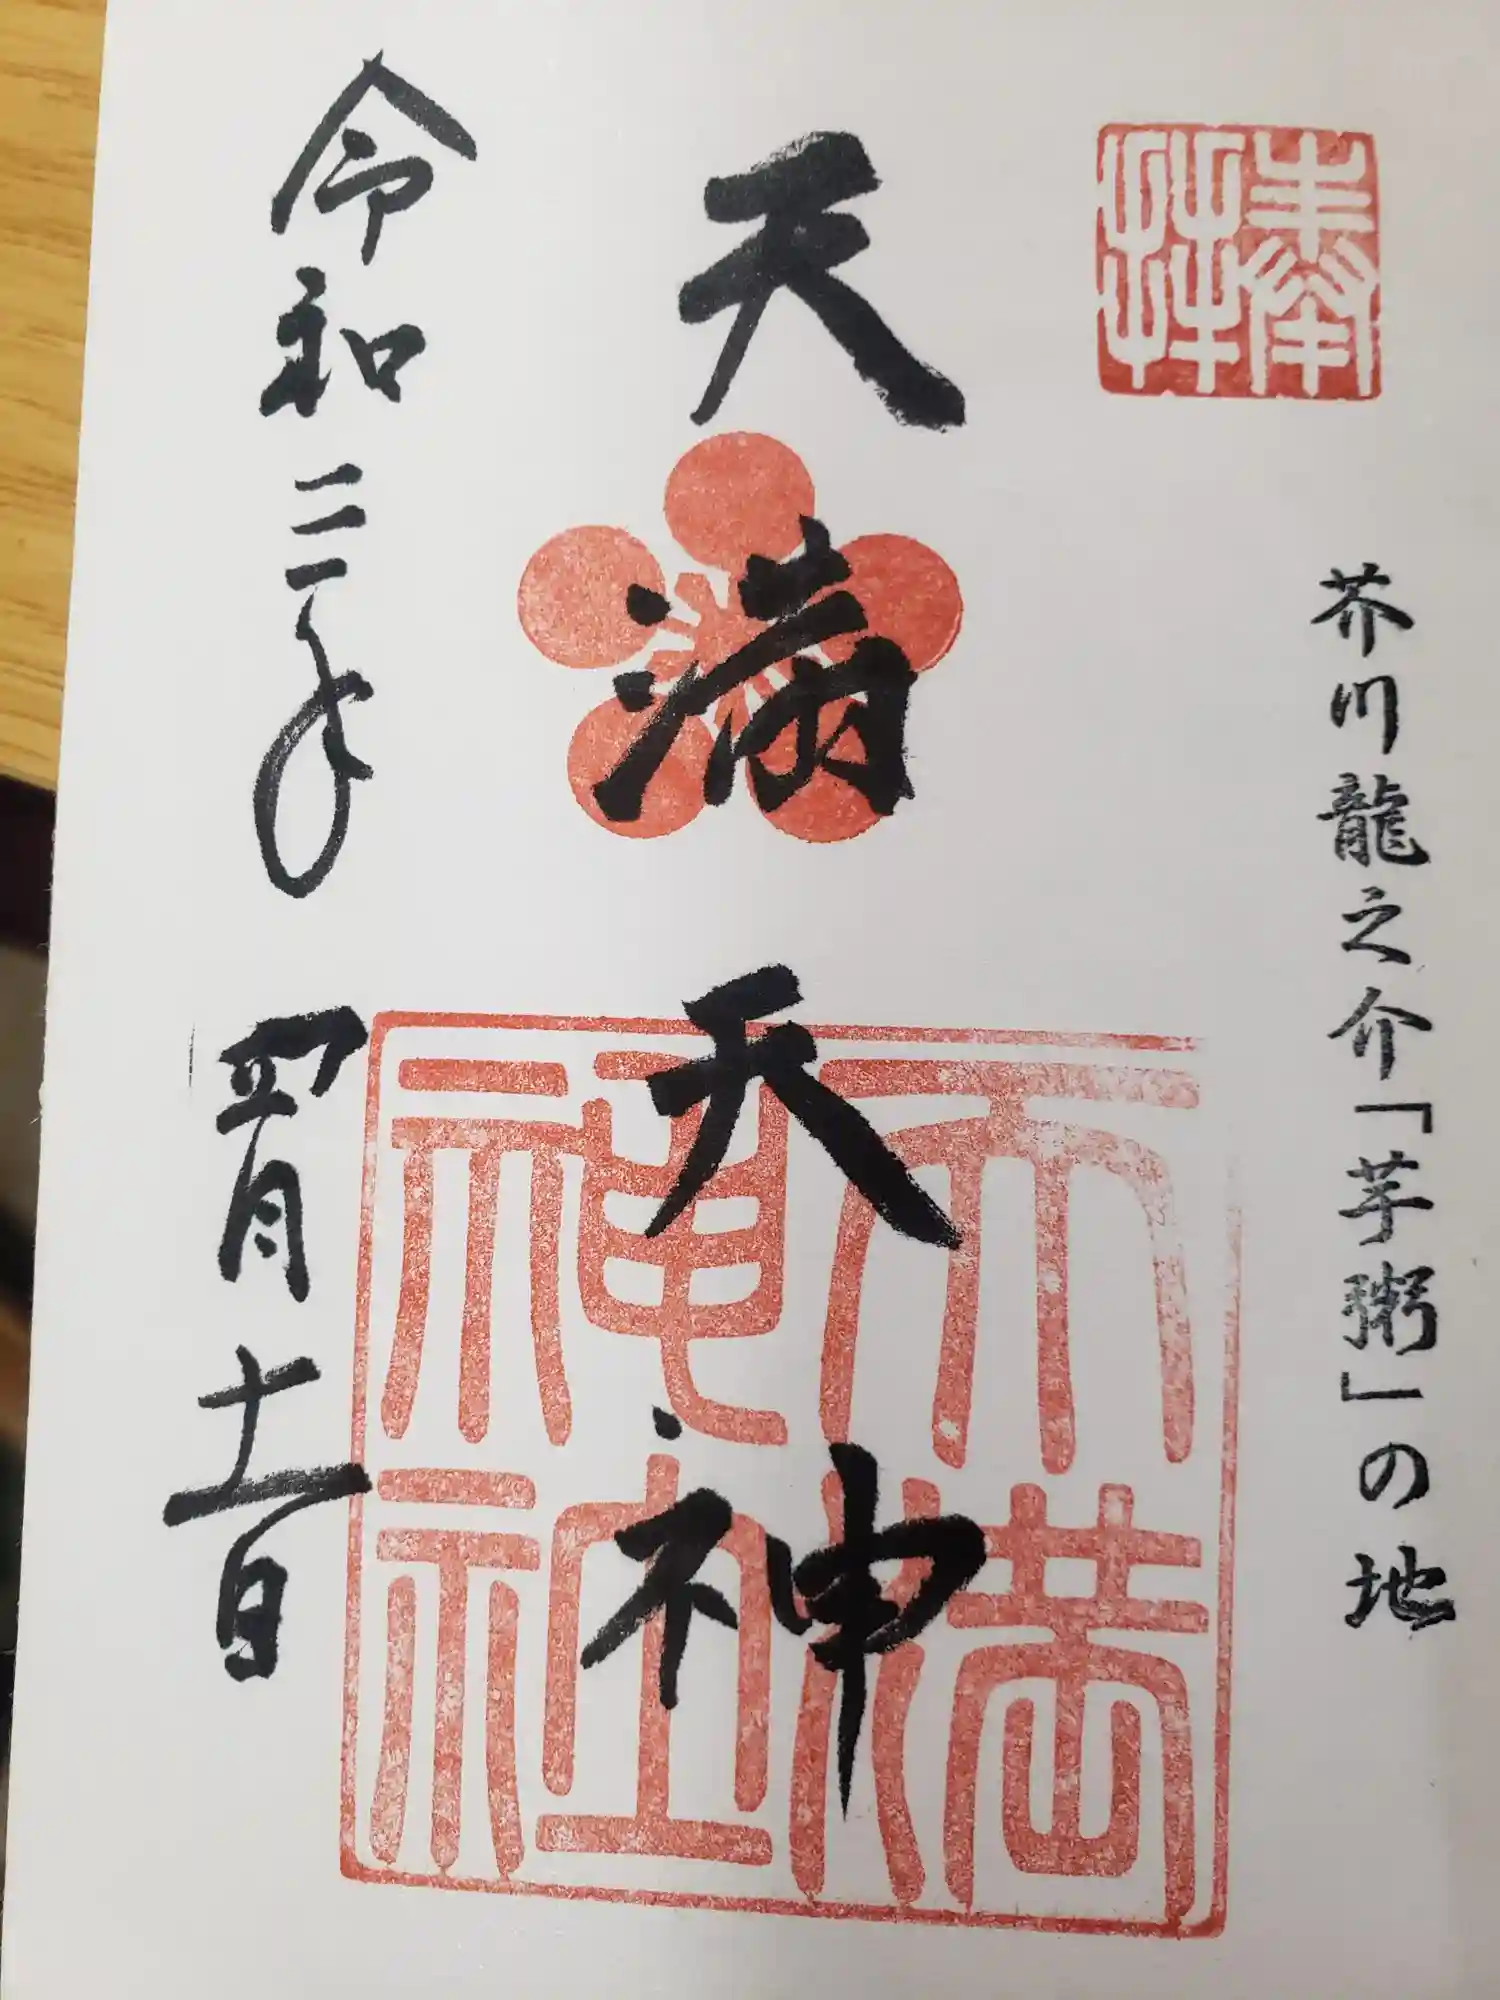 奉拝
芥川龍之介「芋粥」の地
天満天神
天満神社
令和三年 四月十一日